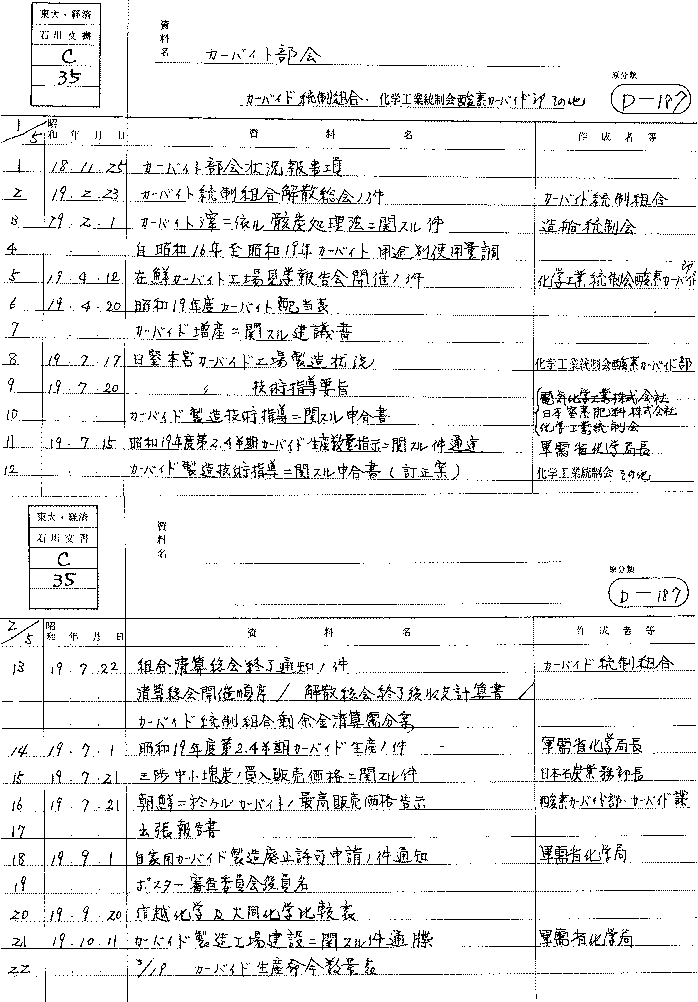 東大・経済
石川文書
C
35
資料名
カーバイト部会
カーバイド統制組合、化学工業統制会酸素カーバイド部 その他
原分類
D-187
1/5
昭和 年 月 日
資 料 名
作 成 者 等
1 18.11.25 カーバイト部会状況報告事項
2 19.2.23 カーバイト統制組合解散総会ノ件 カーバイド統制組合
3 19.2.1 カーバイト滓ニ依ル 処理法ニ関スル件 造船統制会
4 自昭和16年至昭和19年カーバイト用途別使用量調
5 19.4.12 在鮮カーバイト工場見学報告会開催ノ件 化学工業統制会酸素カーバイド部
6 19.4.20 昭和19年度カーバイト配当表
7 カーバイド増産ニ関スル建議書
8 19.7.17 日窒本宮カーバイド工場製造状況 化学工業統制会酸素カーバイド部
9 19.7.20 〃 技術指導要旨
10 カーバイド製造技術指導ニ関スル申合書 電気化学工業株式会社
日本窒素肥料株式会社
化学工業統制会
11 19.7.15 昭和19年度第2.4半期カーバイド生産数量指示ニ関スル件通達 軍需省化学局長
12 カーバイド製造技術指導ニ関スル申合書(訂正案) 化学工業統制会 その他
東大・経済
石川文書
C
35
資料名
原分類
D-187
2/5
昭和 年 月 日
資 料 名
作 成 者 等
13 19.7.22 組合清算総会終了通知ノ件 カーバイド統制組合
清算総会開催順序 / 解散総会終了後収支計算書 /
カーバイド統制組合剰余金清算処分案
14 19.7.1 昭和19年度第2.4半期カーバイド生産ノ件 軍需省化学局長
15 19.7.21 三陟中小塊炭ノ買入販売価格ニ関スル件 日本石炭業務部長
16 19.7.21 朝鮮ニ於ケルカーバイトノ最高販売価格告示 酸素カーバイド部・カーバイド課
17 出張報告書
18 19.9.1 自家用カーバイド製造廃止許可申請ノ件通知 軍需省化学局
19 ポスター審査委員会役員名
20 19.9.20 信越化学及大同化学比較表
21 19.10.11 カーバイド製造工場建設ニ関スル件通牒 軍需省化学局
22 3/19 カーバイド生産命令数量表